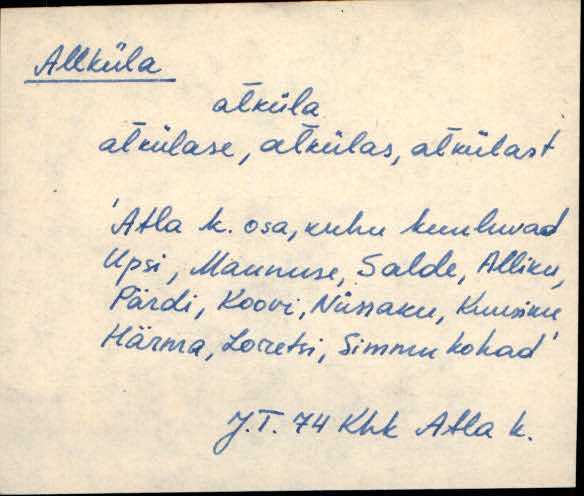 Allküla
alküla
alkülase, alkülas, alkülast
'Atla k. osa, kuhu kuuluvad
Upsi, Maunuse, Salde, Alliku,
Pärdi, Koovi, Nussaku, Kuusiku
Härma, Loretsi, Simmu kohad'
J.T. 74 Khk Atla k.